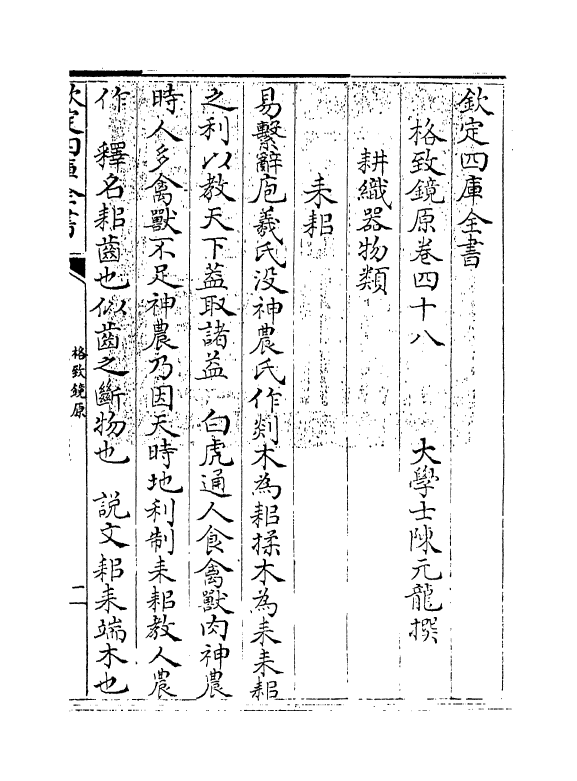 欽定四庫全書
格致鏡原卷四十八　　大學士陳元龍撰
耕織器物類
耒耜
易繫辭庖羲氏没神農氏作剡木為耜揉木為耒耒耜
之利以教天下葢取諸益　白虎通人食禽獸肉神農
時人多禽獸不足神農乃因天時地利制耒耜教人農
作　釋名耜齒也似齒之斷物也　説文耜耒端木也
欽定四庫全書
格致鏡原